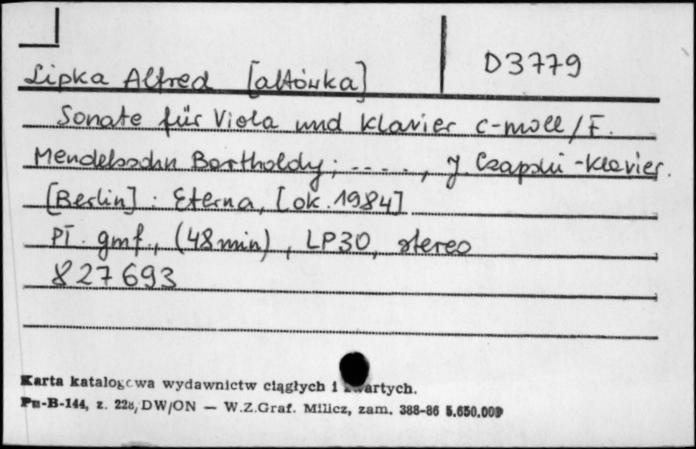 D3779
Lipka Alfred [altówka]
Sonate für Viola und Klavier c-moll/F.
Mendelssohn Bartholdy; -..., J. Czapski -Klavier.
[Berlin]: Eterna, [ok. 1984]
Pł. gmf., (48 min), LP30, stereo
827693
Karta katalogowa wydawnictw ciągłych i zwartych.
Pu-B-144, z. 228/DW/ON — W.Z.Graf. Milicz, zam. 388-86 5.650.000